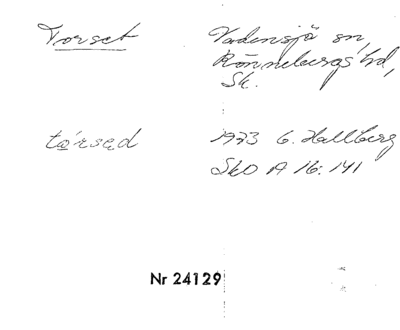 Torset Vadensjö sn,
Rönnebergs hd,
Sk.
tårsad 1933 G. Hallberg
SkO A 16:141
Nr 24129